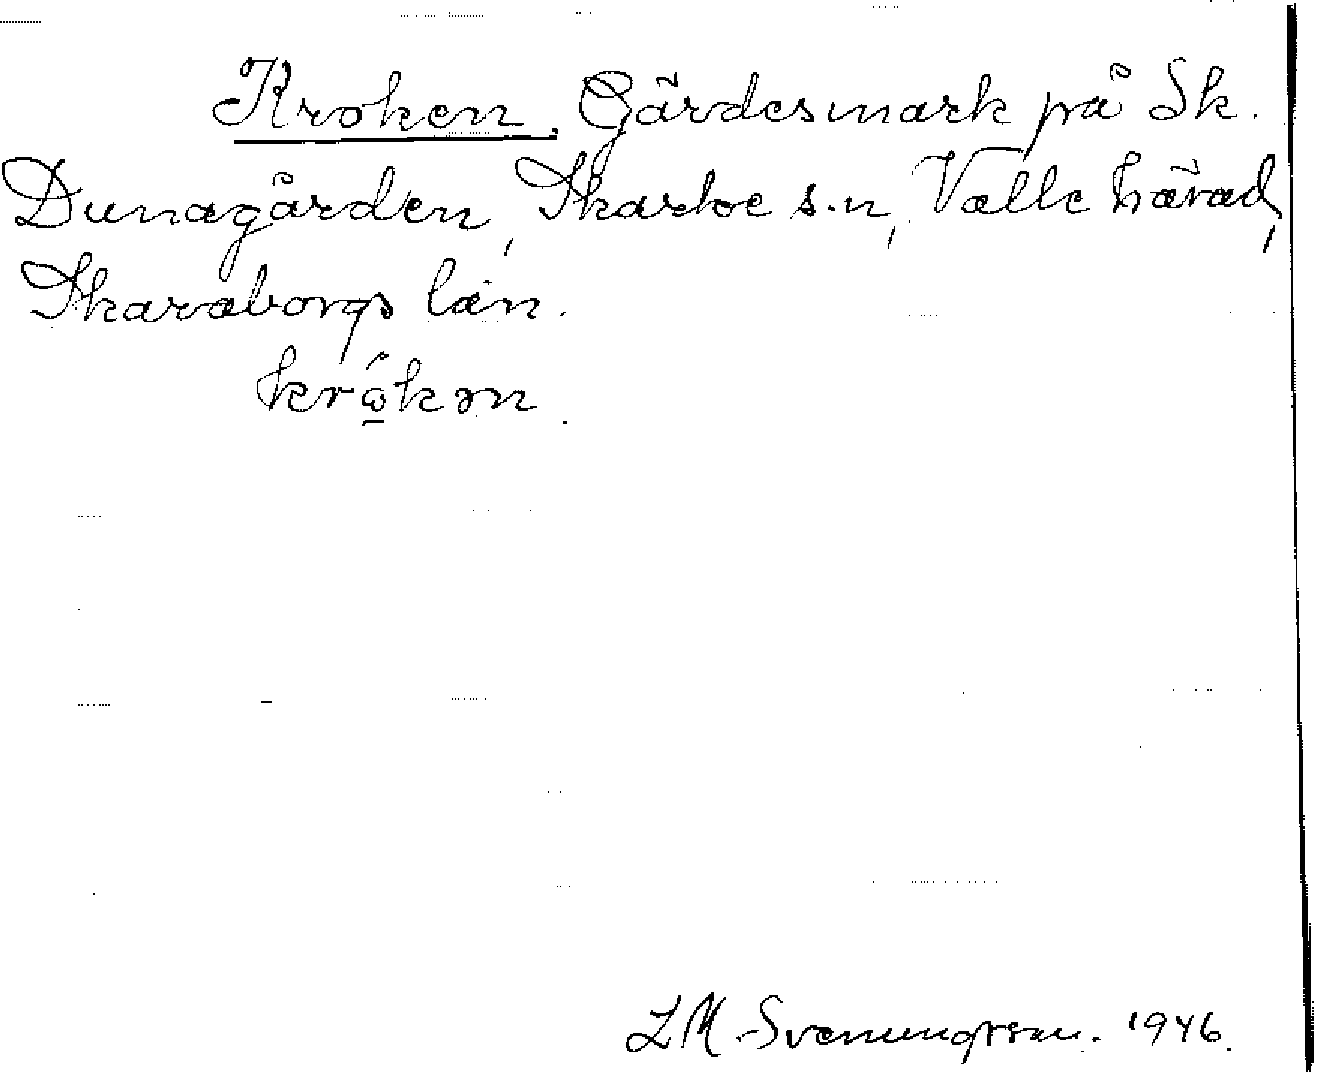 Kroken, Gärdesmark på Sk.
Dunagården, Skarke s:n, Valle härad,
Skaraborgs län.
krώ̱kən.
L M Svenungsson. 1946.